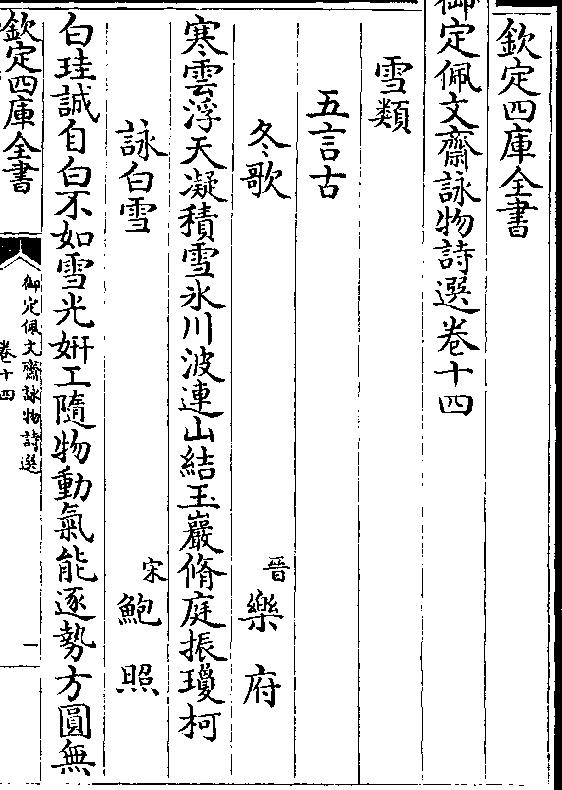 欽定四庫全書
御定佩文齋詠物詩選卷十四
雪類
五言古
冬歌 晉 樂府
寒雲浮天凝積雪氷川波連山結玉巖脩庭振瓊柯
詠白雪 宋 鮑照
白珪誠自白不如雪光妍工隨物動氣能逐勢方圓無
欽定四庫全書
御定佩文齋詠物詩選
卷十四
一